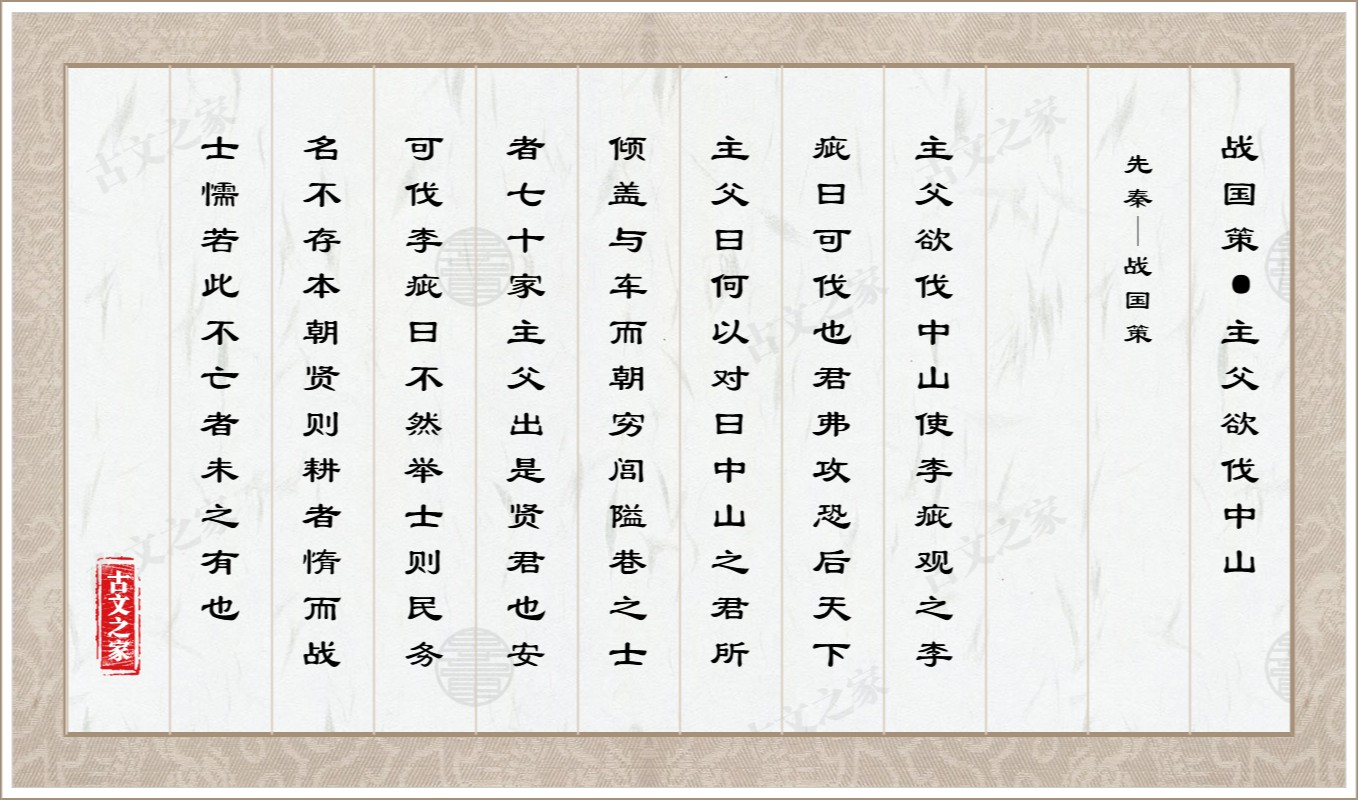 战国策●主父欲伐中山
先秦—战国策
主父欲伐中山使李疵观之李
疵曰可伐也君弗攻恐后天下
主父曰何以对曰中山之君所
倾盖与车而朝穷闾隘巷之士
者七十家主父出是贤君也安
可伐李疵曰不然举士则民务
名不存本朝贤则耕者惰而战
士懦若此不亡者未之有也
古文之家